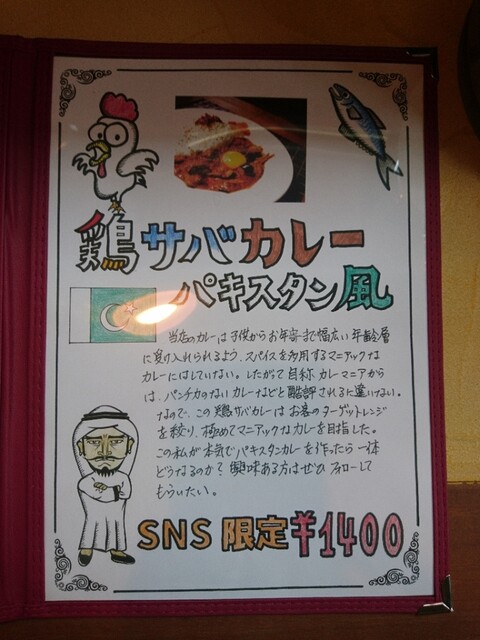 鶏サバカレー
パキスタン風
当店のカレーは子供からお年寄まで幅広い年齢層
に受け入れられるよう、スパイスを多用するマニアックな
カレーにはしていない。したがって自称カレーマニアから
は、パンチカのないカレーなどと酷評されるに違いない。
なので、この鶏サバカレーはお客のターゲットレンジ
を絞り、極めてマニアックなカレーを目指した。
この私が本気でパキスタンカレーを作ったら一体
どうなるのか？興味ある方はぜひフォローして
もらいたい。
SNS限定¥1400